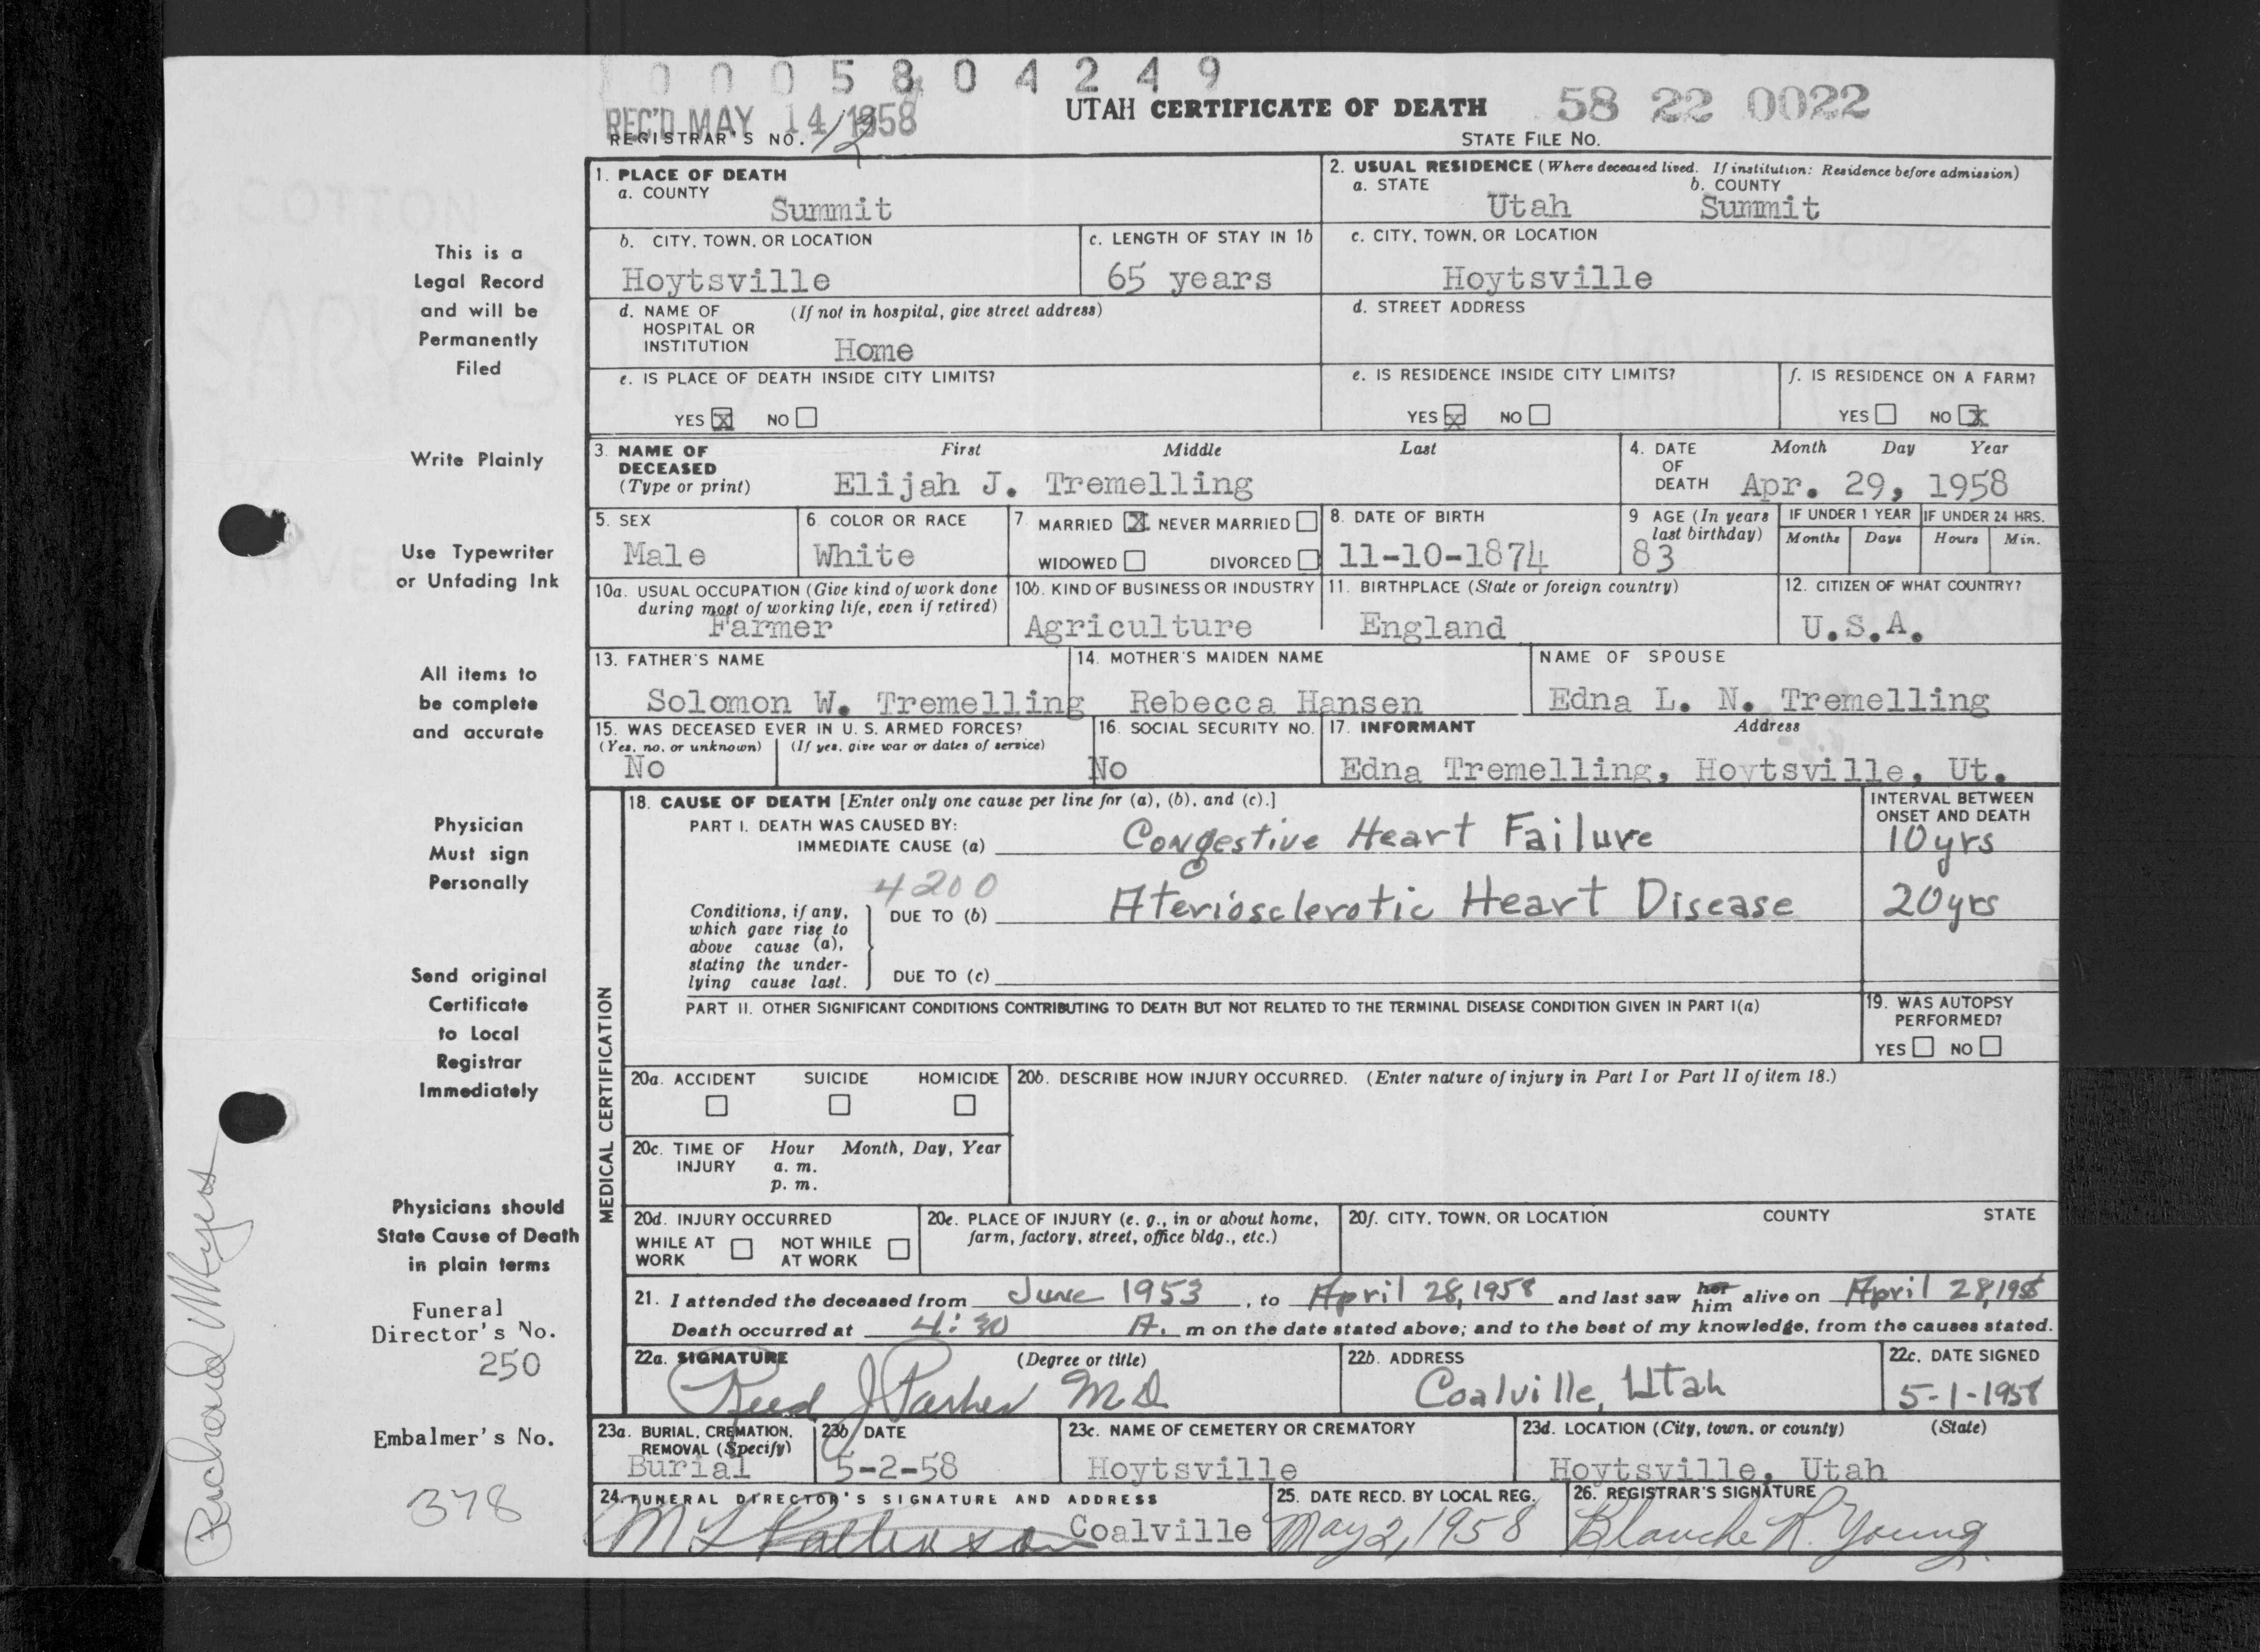 0 0 0 5 8 0 4 2 4 9
REC'D MAY 14 1958
UTAH CERTIFICATE OF DEATH 58 22 0022
REGISTRAR'S NO. 12
STATE FILE No.
This is a
Legal Record
and will be
Permanently
Filed
Write Plainly
Use Typewriter
or Unfading Ink
All items to
be complete
and accurate
Physician
Must sign
Personally
Send original
Certificate
to Local
Registrar
Immediately
Physicians should
State Cause of Death
in plain terms
Funeral
Director's No.
250
Embalmer's No.
378
Richard Myers
1. PLACE OF DEATH
a. COUNTY
Summit
2. USUAL RESIDENCE (Where deceased lived. If institution: Residence before admission)
a. STATE b. COUNTY
Utah Summit
b. CITY, TOWN, OR LOCATION
Hoytsville
c. LENGTH OF STAY IN 1b
65 years
c. CITY, TOWN, OR LOCATION
Hoytsville
d. NAME OF (If not in hospital, give street address)
HOSPITAL OR
INSTITUTION Home
d. STREET ADDRESS
e. IS PLACE OF DEATH INSIDE CITY LIMITS?
YES X NO
e. IS RESIDENCE INSIDE CITY LIMITS?
YES X NO
f. IS RESIDENCE ON A FARM?
YES NO X
3. NAME OF First Middle Last
DECEASED
(Type or print) Elijah J. Tremelling
4. DATE Month Day Year
OF
DEATH Apr. 29, 1958
5. SEX
Male
6. COLOR OR RACE
White
7. MARRIED X NEVER MARRIED
WIDOWED DIVORCED
8. DATE OF BIRTH
11-10-1874
9 AGE (In years
last birthday)
83
IF UNDER 1 YEAR IF UNDER 24 HRS.
Months Days Hours Min.
10a. USUAL OCCUPATION (Give kind of work done
during most of working life, even if retired)
Farmer
10b. KIND OF BUSINESS OR INDUSTRY
Agriculture
11. BIRTHPLACE (State or foreign country)
England
12. CITIZEN OF WHAT COUNTRY?
U.S.A.
13. FATHER'S NAME
Solomon W. Tremelling
14. MOTHER'S MAIDEN NAME
Rebecca Hansen
NAME OF SPOUSE
Edna L. N. Tremelling
15. WAS DECEASED EVER IN U. S. ARMED FORCES?
(Yes, no, or unknown) (If yes, give war or dates of service)
No
16. SOCIAL SECURITY NO.
No
17. INFORMANT Address
Edna Tremelling, Hoytsville, Ut.
MEDICAL CERTIFICATION
18. CAUSE OF DEATH [Enter only one cause per line for (a), (b), and (c).]
INTERVAL BETWEEN
ONSET AND DEATH
PART I. DEATH WAS CAUSED BY:
IMMEDIATE CAUSE (a) Congestive Heart Failure 10 yrs
4200
Conditions, if any,
which gave rise to
above cause (a),
stating the under-
lying cause last.
DUE TO (b) Ateriosclerotic Heart Disease 20 yrs
DUE TO (c)
PART II. OTHER SIGNIFICANT CONDITIONS CONTRIBUTING TO DEATH BUT NOT RELATED TO THE TERMINAL DISEASE CONDITION GIVEN IN PART I(a)
19. WAS AUTOPSY
PERFORMED?
YES NO
20a. ACCIDENT SUICIDE HOMICIDE
20b. DESCRIBE HOW INJURY OCCURRED. (Enter nature of injury in Part I or Part II of item 18.)
20c. TIME OF Hour Month, Day, Year
INJURY a. m.
p. m.
20d. INJURY OCCURRED
WHILE AT NOT WHILE
WORK AT WORK
20e. PLACE OF INJURY (e. g., in or about home,
farm, factory, street, office bldg., etc.)
20f. CITY, TOWN, OR LOCATION COUNTY STATE
21. I attended the deceased from June 1953, to April 28, 1958 and last saw her him alive on April 28, 1958
Death occurred at 4:30 A. m on the date stated above; and to the best of my knowledge, from the causes stated.
22a. SIGNATURE (Degree or title)
Reed J Parker M D
22b. ADDRESS
Coalville, Utah
22c. DATE SIGNED
5-1-1958
23a. BURIAL, CREMATION,
REMOVAL (Specify)
Burial
23b DATE
5-2-58
23c. NAME OF CEMETERY OR CREMATORY
Hoytsville
23d. LOCATION (City, town, or county) (State)
Hoytsville, Utah
24. FUNERAL DIRECTOR'S SIGNATURE AND ADDRESS
Coalville
25. DATE RECD. BY LOCAL REG.
May 2, 1958
26. REGISTRAR'S SIGNATURE
Blanche R. Young